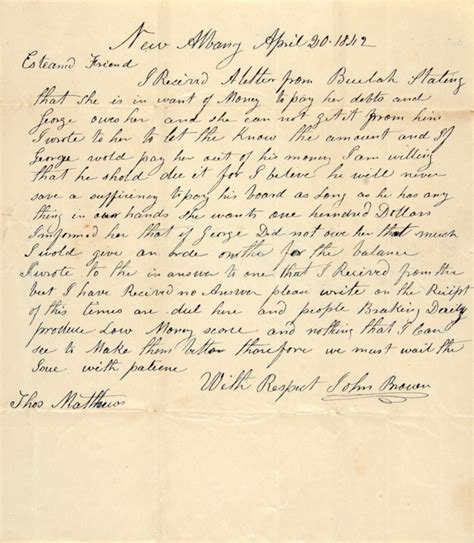 New Albany April 20. 1842
Esteamd Friend
I Recived A letter from Beulah Stating
that She is in want of Money to pay her debts and
George owes her and she can not get it from him
I wrote to her to let the Know the amount and If
George wold pay her out of his money I am willing
that he shold due it for I believe he will never
save a suffirency to pay his board as long as he has any
thing in our hands She wants one hundred Dollars
I informed her that if George Did not owe her that much
I wold give an orde on the for the balance
I wrote to the in answer to one that I Recived from the
but I have Recived no Answer please write on the Recipt
of this times are dul here and people Braking Dayly
produce Low Money scarce and nothing that I Can
see to Make them better therefore we must wait the
with patience
With Respect John Brown
Thos Matthews